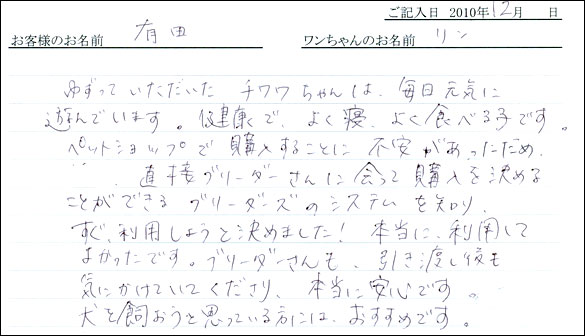 ご記入日 2010年12月 日
お客様のお名前 有田 ワンちゃんのお名前 リン
ゆずっていただいた チワワちゃんは、毎日元気に
遊んでいます。健康で、よく寝、よく食べる子です。
ペットショップで購入することに 不安があったため、
直接ブリーダーさんに会って購入を決める
ことができる ブリーダーズのシステムを知り、
すぐ、利用しようと決めました! 本当に、利用して
よかったです。ブリーダーさんも、引き渡し後も
気にかけていてくださり、本当に安心です。
犬を飼おうと思っている方には、おすすめです。